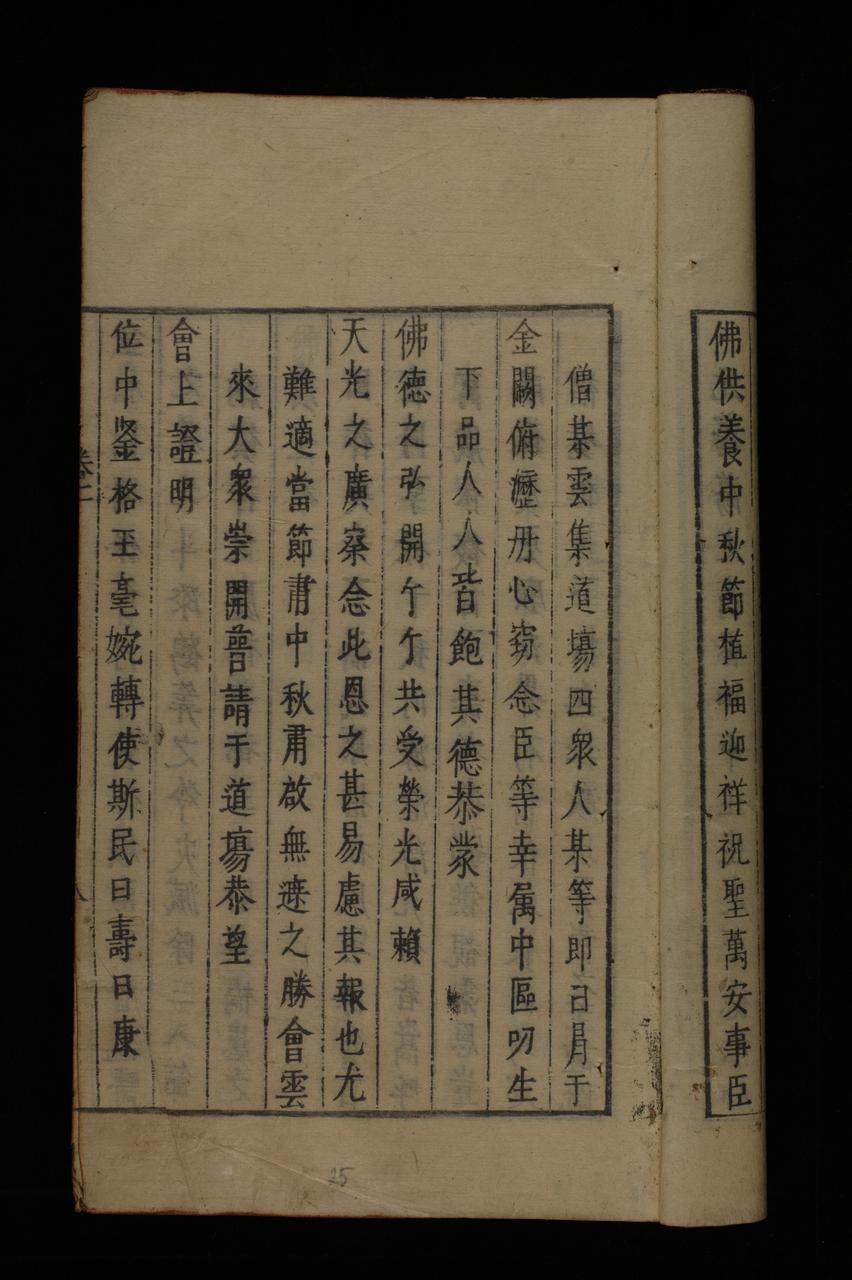 佛供養中秋節植福迎祥祝聖萬安事臣
僧某雲集道場四衆人某等即日肙于
金闕俯瀝丹心窃念臣等幸属中區叨生
下品人人皆飽其德恭蒙
佛德之弘開个个共受榮光咸賴
天光之廣察念此恩之甚易慮其報也尤
難適當節肅中秋肅啟無遮之勝會雲
來大衆崇開普請于道場恭望
會上證明
位中鉴格玉毫婉轉使斯民曰壽曰康
卷二
25